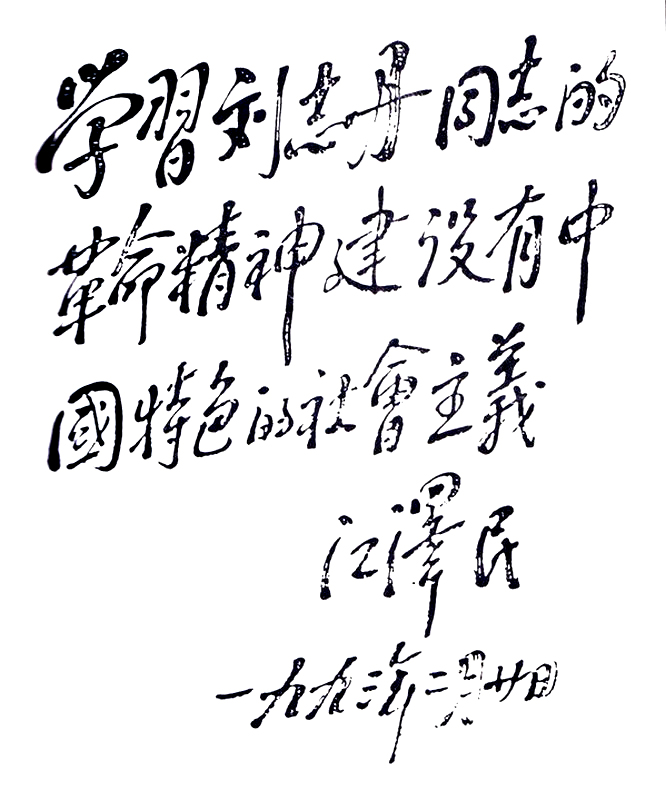 学習刘志丹同志的
革命精神建设有中
國特色的社會主義
江澤民
一九九三年二月廿日